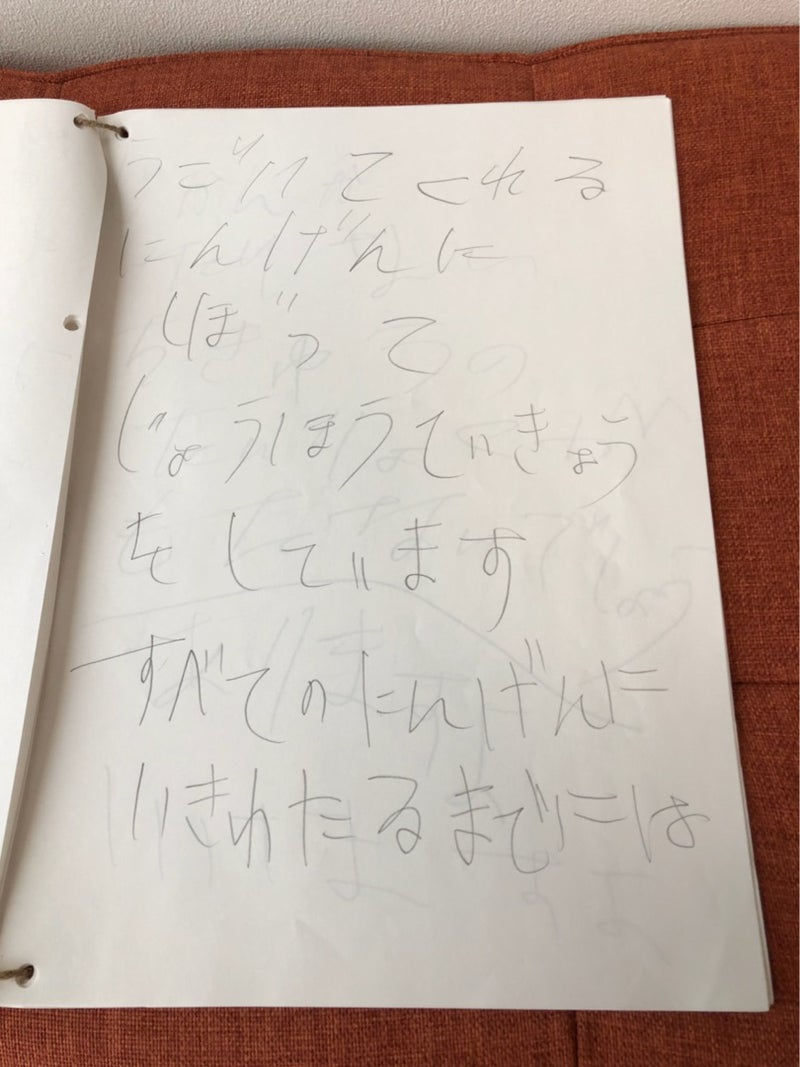 うごいてくれる
にんげんに
しぼって
じょうほうていきょう
をしています
すべてのにんげんに
いきわたるまでには